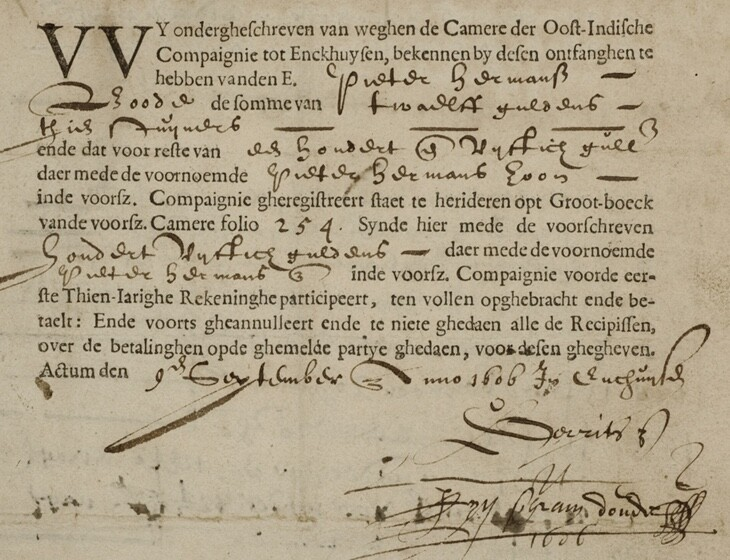 WY ondergheschreven van weghen de Camere der Oost-Indische
Compaignie tot Enckhuysen, bekennen by desen ontfanghen te
hebben vanden E. Pieter Hermansz
de somme van twaelff guldens
ende dat voor reste van een hondert vyftich gull
daer mede de voornoemde Pieter Hermans zoon
inde voorsz. Compaignie gheregistreert staet te herideren opt Groot-boeck
vande voorsz. Camere folio 254. Synde hier mede de voorschreven
hondert vyftich guldens daer mede de voornoemde
Pieter Hermans inde voorsz. Compaignie voorde eer-
ste Thien-Iarighe Rekeninghe participeert, ten vollen opghebracht ende be-
taelt: Ende voorts gheannulleert ende te niete ghedaen alle de Recipissen,
over de betalinghen opde ghemelde partye ghedaen, voor desen ghegheven.
Actum den 9en September Anno 1606 In Enchuysen
1606